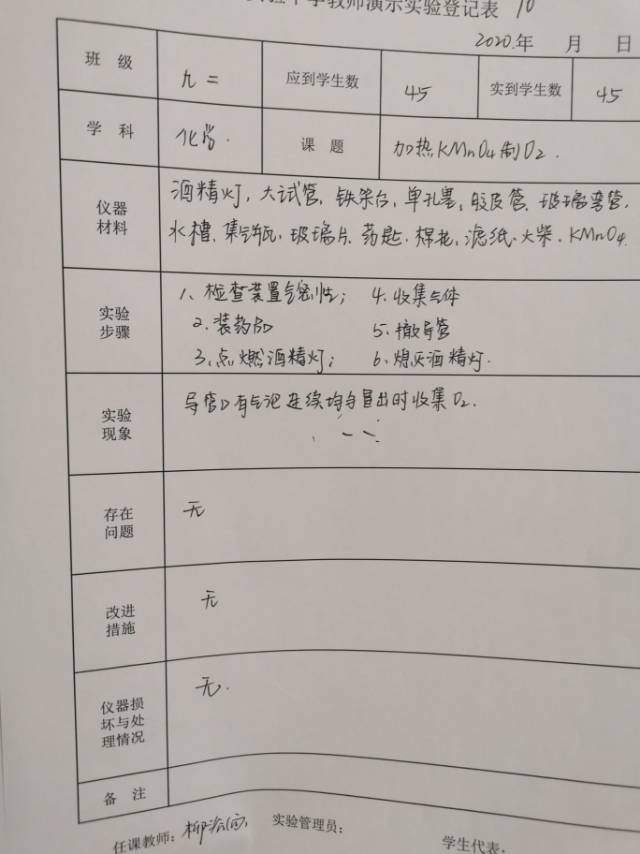 中学教师演示实验登记表 10
2020年 月 日
班 级 九二 应到学生数 45 实到学生数 45
学 科 化学. 课 题 加热KMnO4制O2.
仪器材料
酒精灯, 大试管, 铁架台, 单孔塞, 胶皮管、玻璃弯管,
水槽、集气瓶、玻璃片、药匙、棉花、滤纸、火柴、KMnO4.
实验步骤
1、检查装置气密性; 4.收集气体
2.装药品 5.撤导管
3、点燃酒精灯; 6.熄灭酒精灯.
实验现象
导管口有气泡连续均匀冒出时收集O2.
存在问题
无
改进措施
无
仪器损坏与处理情况
无.
备 注
任课教师: 实验管理员: 学生代表: